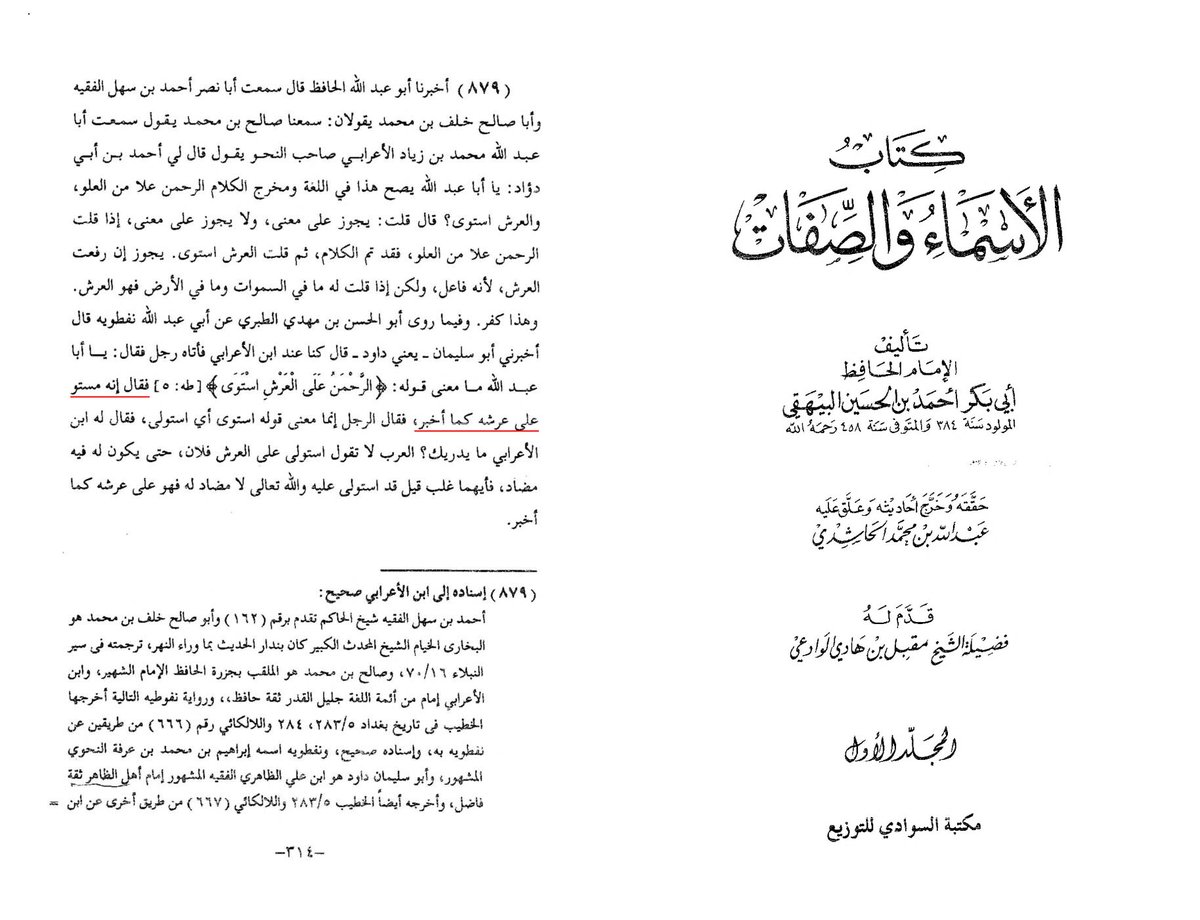 كِتَابُ
الأَسْمَاءُ وَالصِّفَاتْ
تَأليفْ
الإمَام الحَافِظ
أبي بَكر أحمَد بن الحُسَين البَيهَقي
المولود سَنَة ٣٨٤ وَالمتوفى سَنَة ٤٥٨ رَحمَهُ الله
حَقَّقَهُ وَخَرَّجَ أحَادِيثه وَعَلَّق عَلَيه
عَبْد الله بن محمَّد الحَاشِدي
قَدَّمَ لَهُ
فَضِيلَة الشَّيخ مقبل بن هَادي الوَادعي
المجَلّد الأول
مكتبة السوادي للتوزيع
(٨٧٩) أخبرنا أبو عبد الله الحافظ قال سمعت أبا نصر أحمد بن سهل الفقيه
وأبا صالح خلف بن محمد يقولان: سمعنا صالح بن محمد يقول سمعت أبا
عبد الله محمد بن زياد الأعرابي صاحب النحو يقول قال لي أحمد بن أبي
دؤاد: يا أبا عبد الله يصح هذا في اللغة ومخرج الكلام الرحمن علا من العلو،
والعرش استوى؟ قال قلت: يجوز على معنى، ولا يجوز على معنى، إذا قلت
الرحمن علا من العلو، فقد تم الكلام، ثم قلت العرش استوى. يجوز إن رفعت
العرش، لأنه فاعل، ولكن إذا قلت له ما في السموات وما في الأرض فهو العرش.
وهذا كفر. وفيما روى أبو الحسن بن مهدي الطبري عن أبي عبد الله نفطويه قال
أخبرني أبو سليمان ـ يعني داود ـ قال كنا عند ابن الأعرابي فأتاه رجل فقال: يا أبا
عبد الله ما معنى قوله: ﴿الرَّحْمَنُ عَلَى الْعَرْشِ اسْتَوَى﴾ [طه: ٥] فقال إنه مستو
على عرشه كما أخبر، فقال الرجل إنما معنى قوله استوى أي استولى، فقال له ابن
الأعرابي ما يدريك؟ العرب لا تقول استولى على العرش فلان، حتى يكون له فيه
مضاد، فأيهما غلب قيل قد استولى عليه والله تعالى لا مضاد له فهو على عرشه كما
أخبر.
(٨٧٩) إسناده إلى ابن الأعرابي صحيح:
أحمد بن سهل الفقيه شيخ الحاكم تقدم برقم (١٦٢) وأبو صالح خلف بن محمد هو
البخارى الخيام الشيخ المحدث الكبير كان بندار الحديث بما وراء النهر، ترجمته فى سير
النبلاء ٧٠/١٦، وصالح بن محمد هو الملقب بجزرة الحافظ الإمام الشهير، وابن
الأعرابي إمام من أئمة اللغة جليل القدر ثقة حافظ،، ورواية نفوطيه التالية أخرجها
الخطيب فى تاريخ بغداد ٢٨٣/٥، ٢٨٤ واللالكائي رقم (٦٦٦) من طريقين عن
نفطويه به، وإسناده صحيح، ونفطويه اسمه إبراهيم بن محمد بن عرفة النحوي
المشهور، وأبو سليمان داود هو ابن علي الظاهري الفقيه المشهور إمام أهل الظاهر ثقة
فاضل، وأخرجه أيضاً الخطيب ٢٨٣/٥ واللالكائي (٦٦٧) من طريق أخرى عن ابن =
–٣١٤–